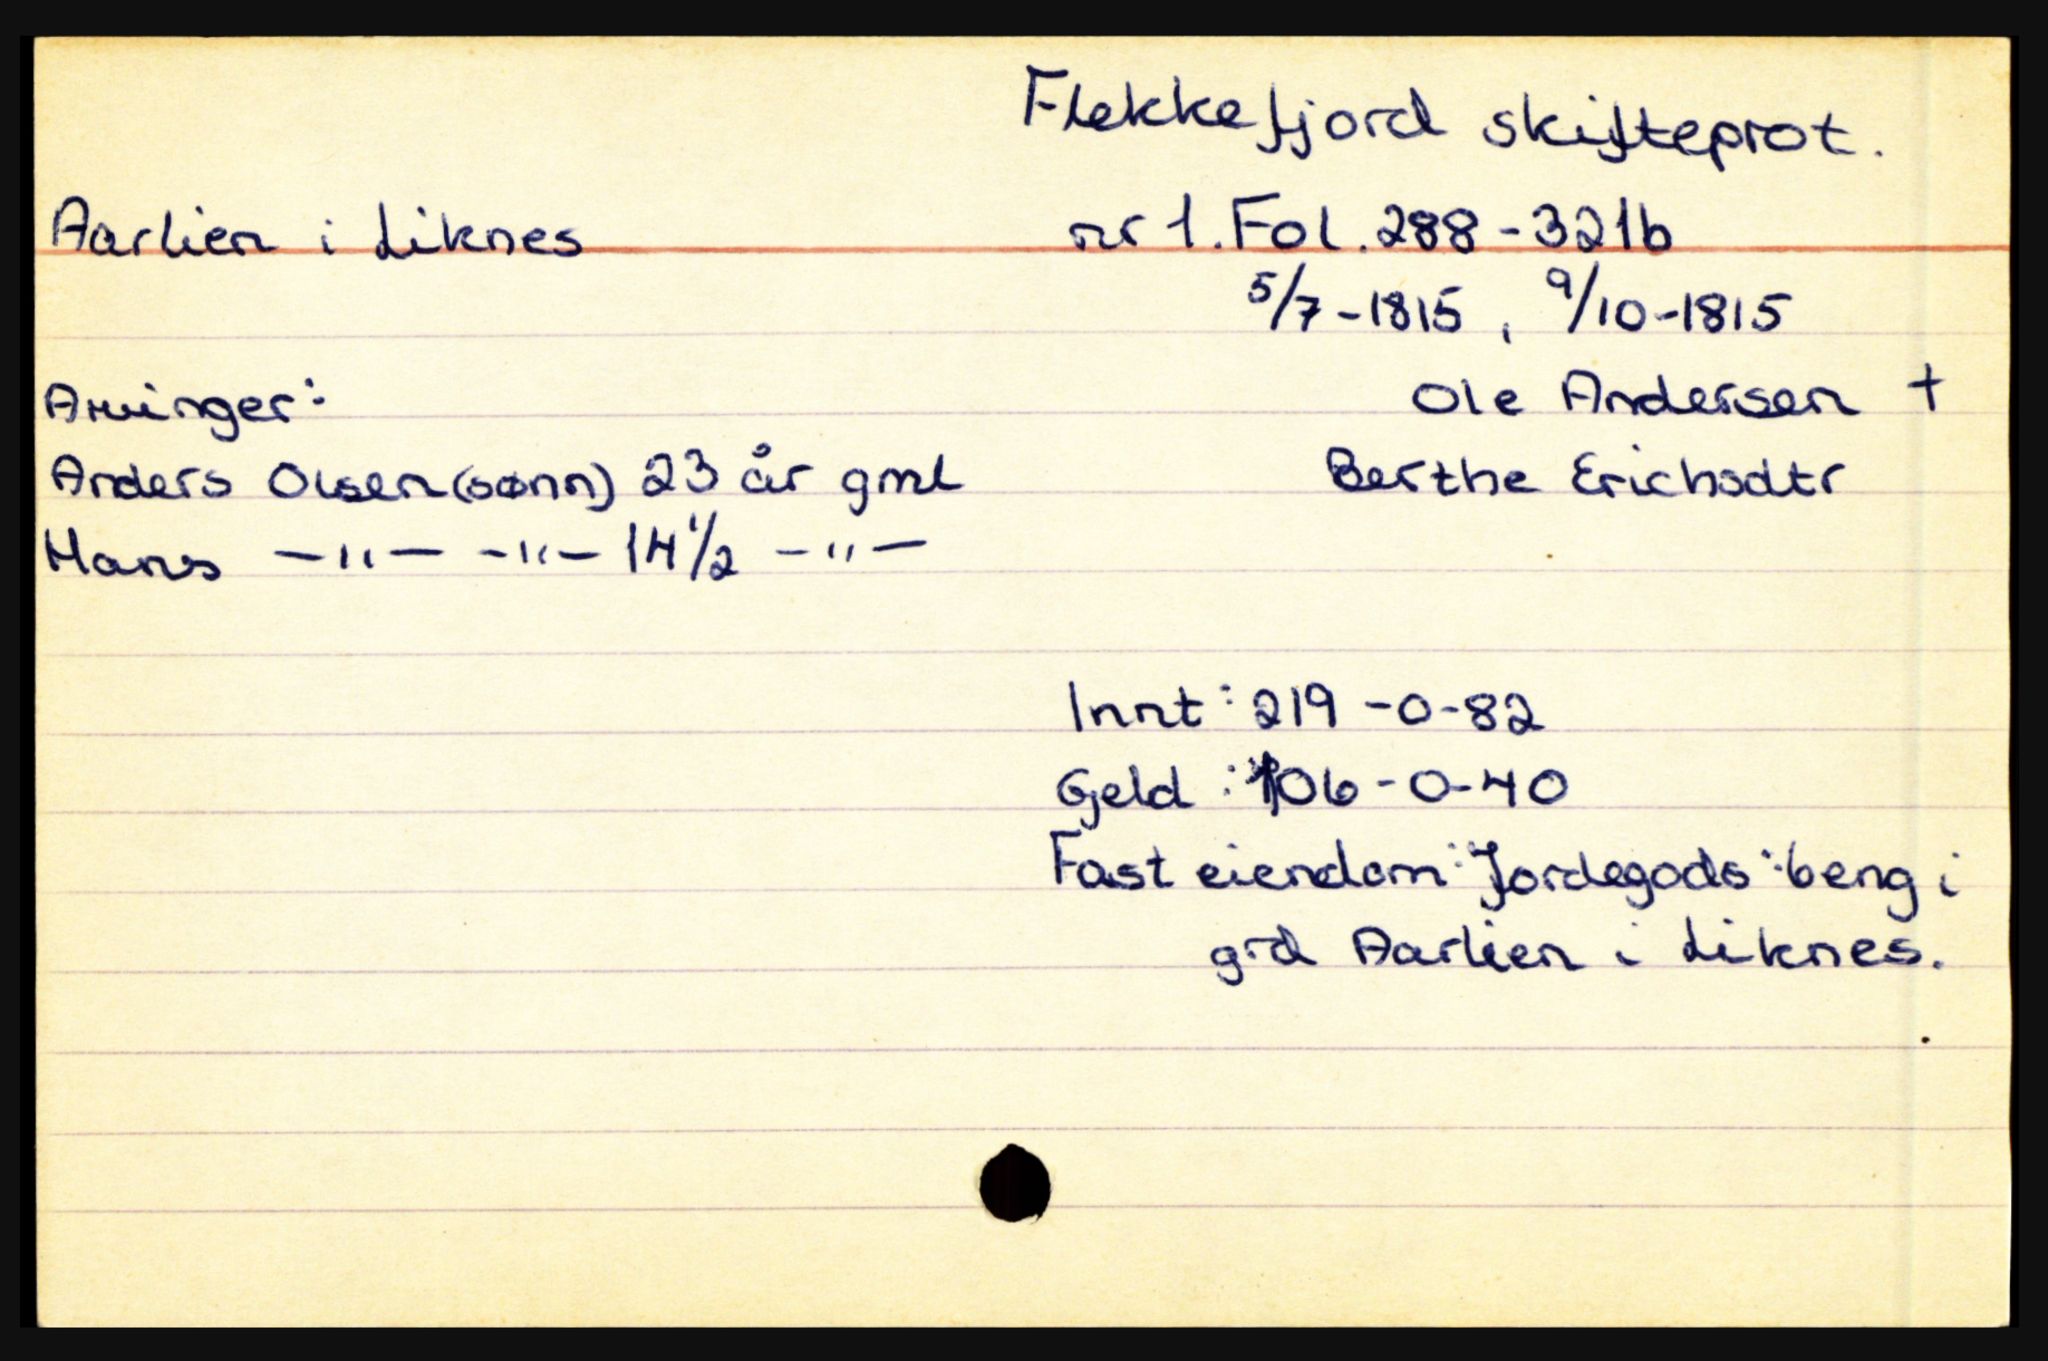 Flekkefjord skifteprot.
Aarlien i Liknes nr 1. Fol. 288-321b
5/7-1815, 9/10-1815
Arvinger: Ole Andersen †
Anders Olsen (sønn) 23 år gml Berthe Erichsdtr
Hans -"- -"- 14 1/2 -"-
Innt: 219-0-82
Geld: 106-0-40
Fast eiendom: Jordegods: beng i
grd Aarlien i Liknes.